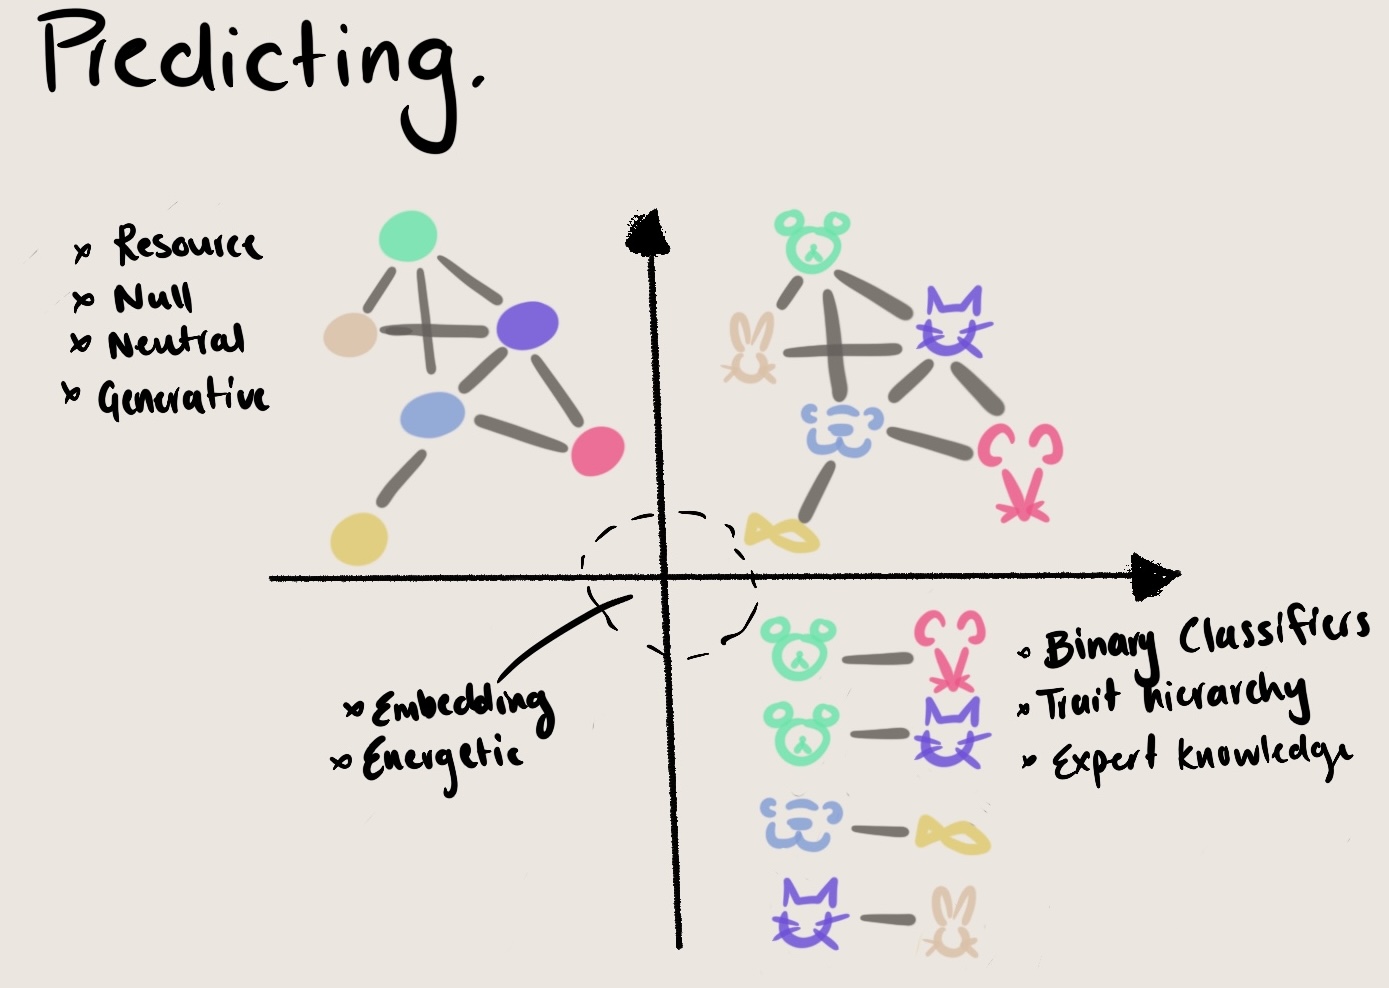 Predicting.
× Resource
× Null
× Neutral
× Generative
× Embedding
× Energetic
× Binary Classifiers
× Trait hierarchy
× Expert knowledge